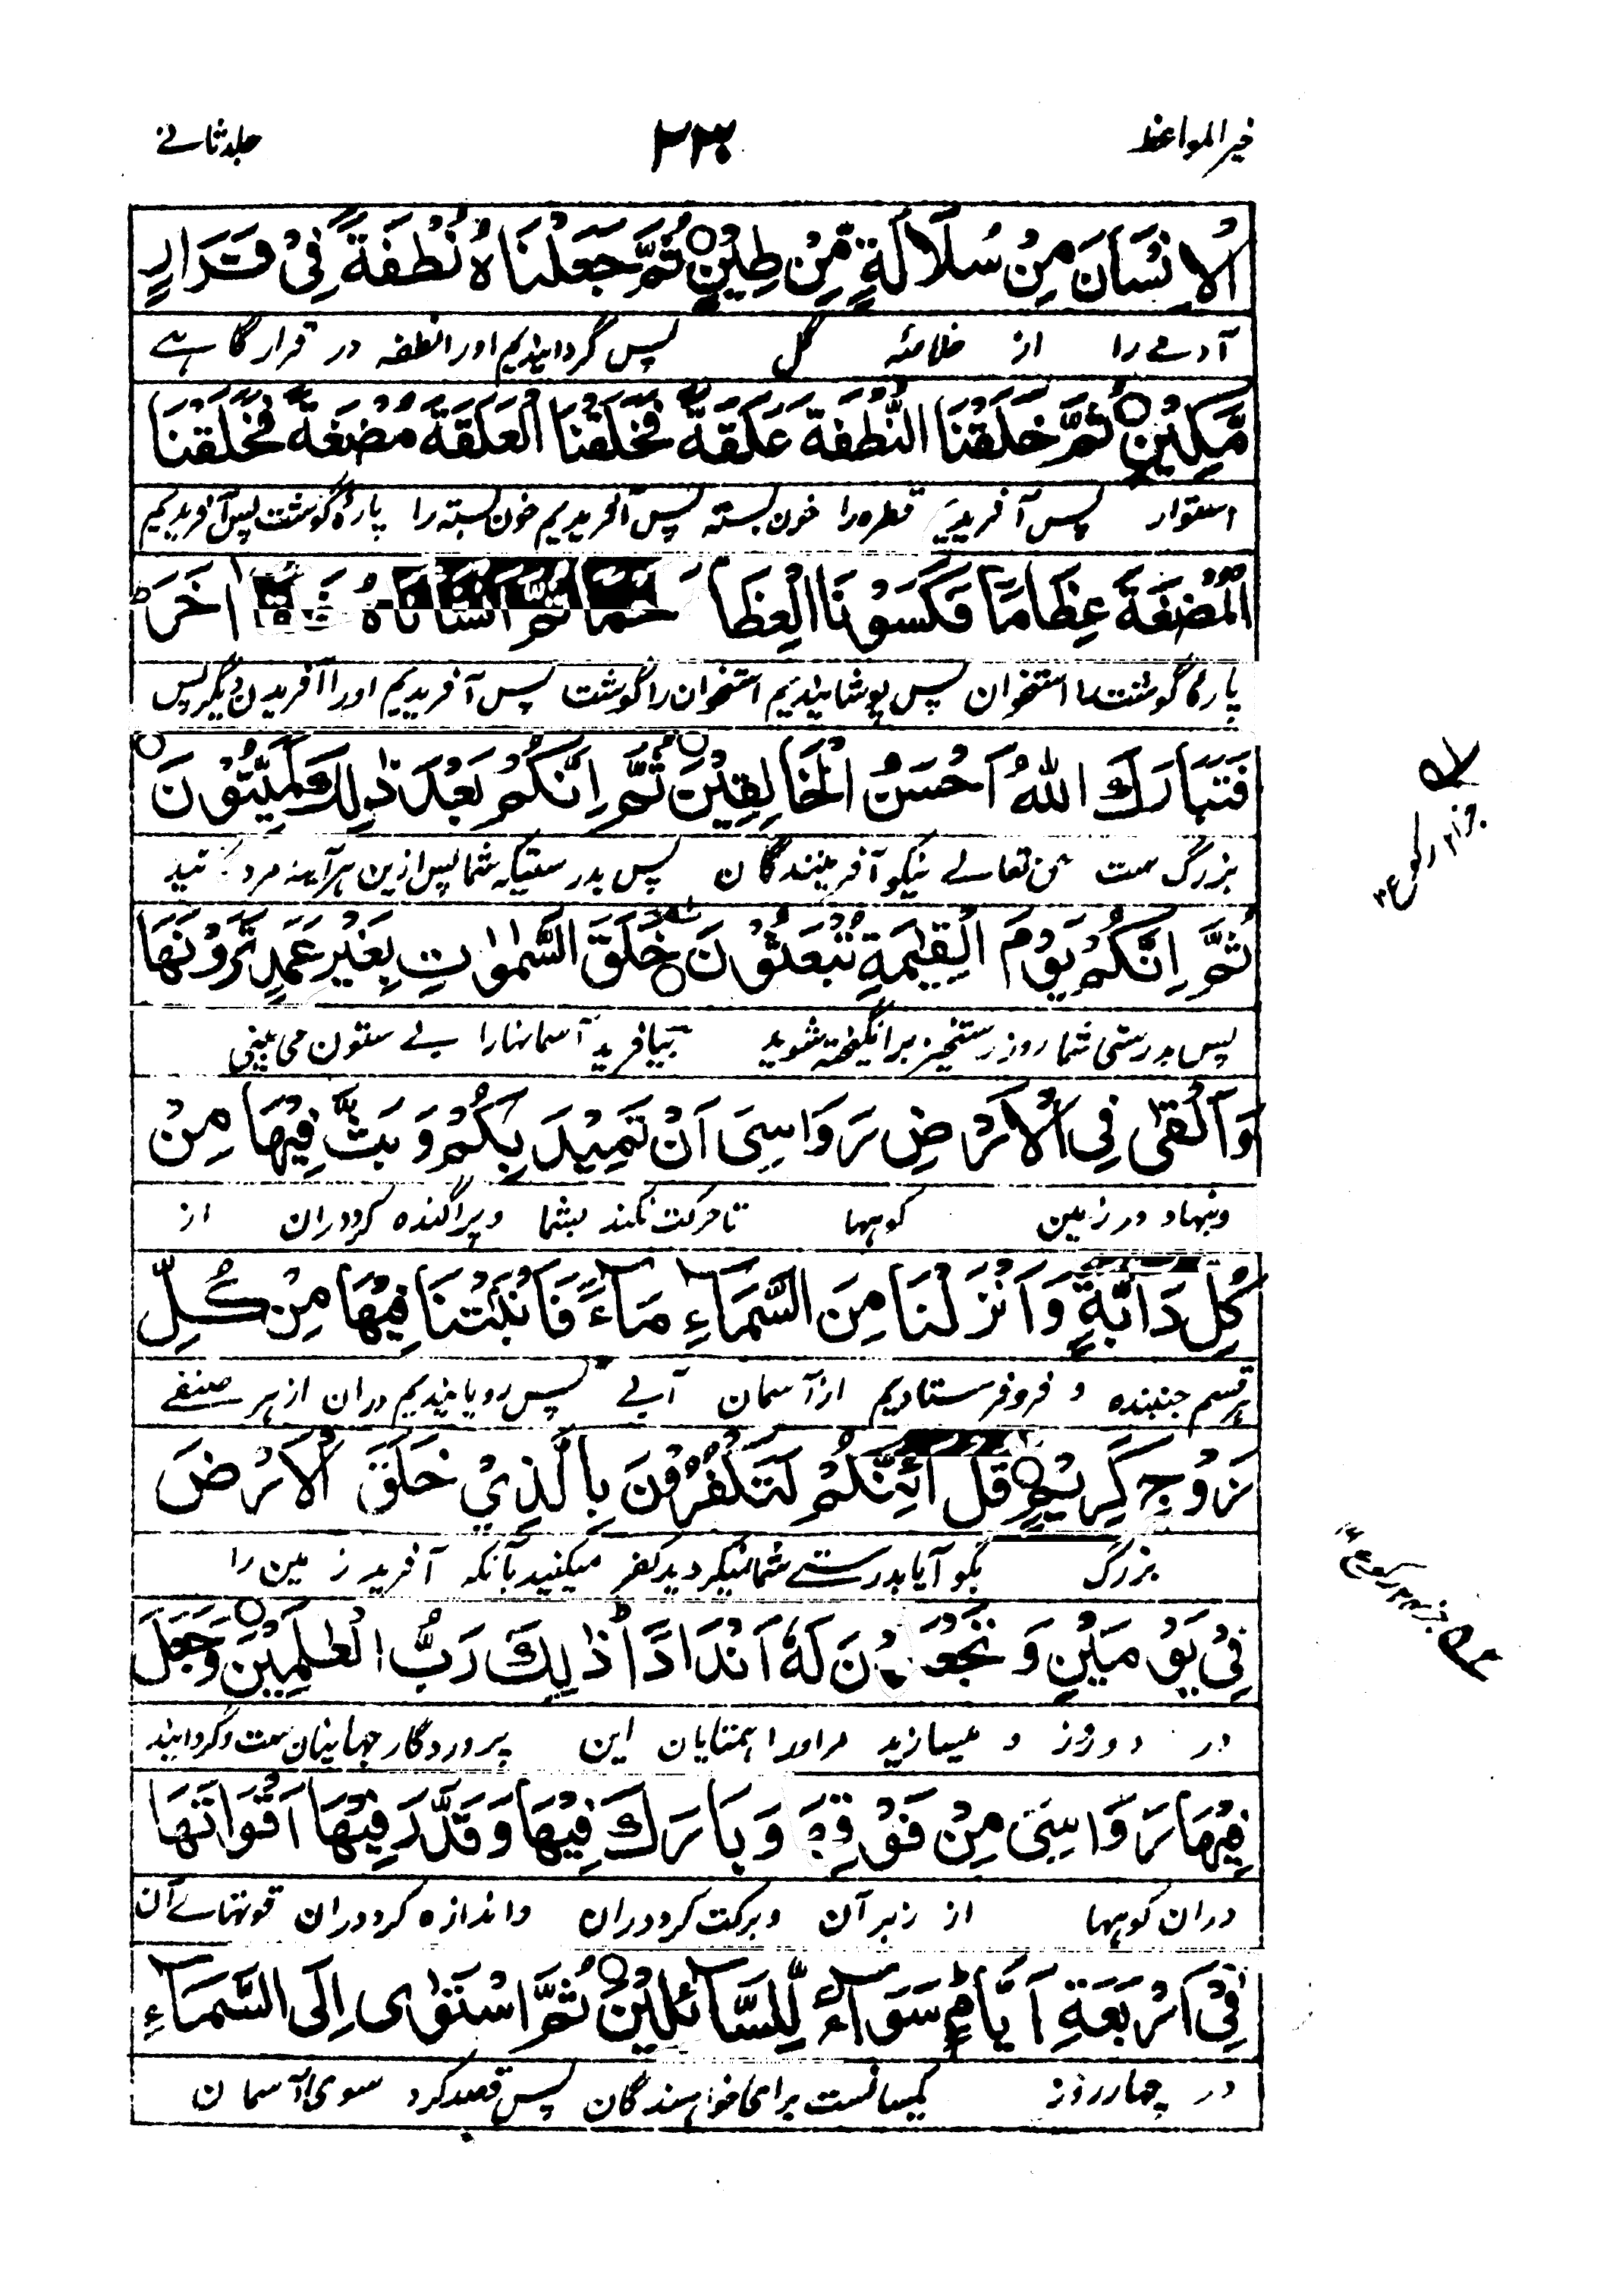 خیر المواعظ
۲۳۰
جلد ثانے
الْاِنْسَانَ مِنْ سُلَالَةٍ مِّنْ طِيْنٍ ثُمَّ جَعَلْنَاهُ نُطْفَةً فِىْ قَرَارٍ
آدمے را از خلاصۂ گل پس گردانیدیم اورا نطفه در قرارگاہے
مَّكِيْنٍ ثُمَّ خَلَقْنَا النُّطْفَةَ عَلَقَةً فَخَلَقْنَا الْعَلَقَةَ مُضْغَةً فَخَلَقْنَا
استوار پس آفریدیم قطره را خون بسته پس آفریدیم خون بسته را پارۂ گوشت پس آفریدیم
الْمُضْغَةَ عِظَامًا فَكَسَوْنَا الْعِظَا حْمًا ثُمَّ اَنْشَاْنَاهُ اٰخَرَ ط
پارۂ گوشت را استخوان پس پوشانیدیم استخوان را گوشت پس آفریدیم اورا آفریدن دیگر پس
فَتَبَارَكَ اللهُ اَحْسَنُ الْخَالِقِيْنَ ثُمَّ اِنَّكُمْ بَعْدَ ذٰلِكَ لَمَيِّتُوْنَ
بزرگ ست حق تعالے نیکو آفرینندگان پس بدرستیکه شما پس ازین هرآینه مرد
ثُمَّ اِنَّكُمْ يَوْمَ الْقِيٰمَةِ تُبْعَثُوْنَ خَلَقَ السَّمٰوٰتِ بِغَيْرِ عَمَدٍ تَرَوْنَهَا
پس بدرستی شما روز رستخیز برانگیخته شوید بیافرید آسمانها را بے ستون می بینی
وَاَلْقٰى فِى الْاَرْضِ رَوَاسِىَ اَنْ تَمِيْدَ بِكُمْ وَبَثَّ فِيْهَا مِنْ
ونهاد در زمین کوهها تا حرکت نکند بشما و پراگنده کرد دران از
كُلِّ دَابَّةٍ وَاَنْزَلْنَا مِنَ السَّمَاءِ مَاءً فَاَنْبَتْنَا فِيْهَا مِنْ كُلِّ
هر قسم جنبنده و فرو فرستادیم از آسمان آبے پس رویانیدیم دران از هر صنفے
زَوْجٍ كَرِيْمٍ قُلْ اَئِنَّكُمْ لَتَكْفُرُوْنَ بِالَّذِيْ خَلَقَ الْاَرْضَ
بزرگ بگو آیا بدرستے شما کفر میکنید بآنکه آفرید زمین را
فِىْ يَوْمَيْنِ وَتَجْعَلُوْنَ لَهٗ اَنْدَادًا ط ذٰلِكَ رَبُّ الْعٰلَمِيْنَ وَجَعَلَ
در دو روز و میسازید مر اورا همتایان این پروردگار جهانیان ست و گردانید
فِيْهَا رَوَاسِىَ مِنْ فَوْقِهَا وَبَارَكَ فِيْهَا وَقَدَّرَ فِيْهَا اَقْوَاتَهَا
دران کوهها از زبر آن و برکت کرد دران و اندازه کرد دران قوتهاے آن
فِىْ اَرْبَعَةِ اَيَّامٍ ط سَوَآءً لِّلسَّآئِلِيْنَ ثُمَّ اسْتَوٰى اِلَى السَّمَاءِ
در چهار روز یکسانست برای خواهندگان پس قصد کرد سوی آسمان